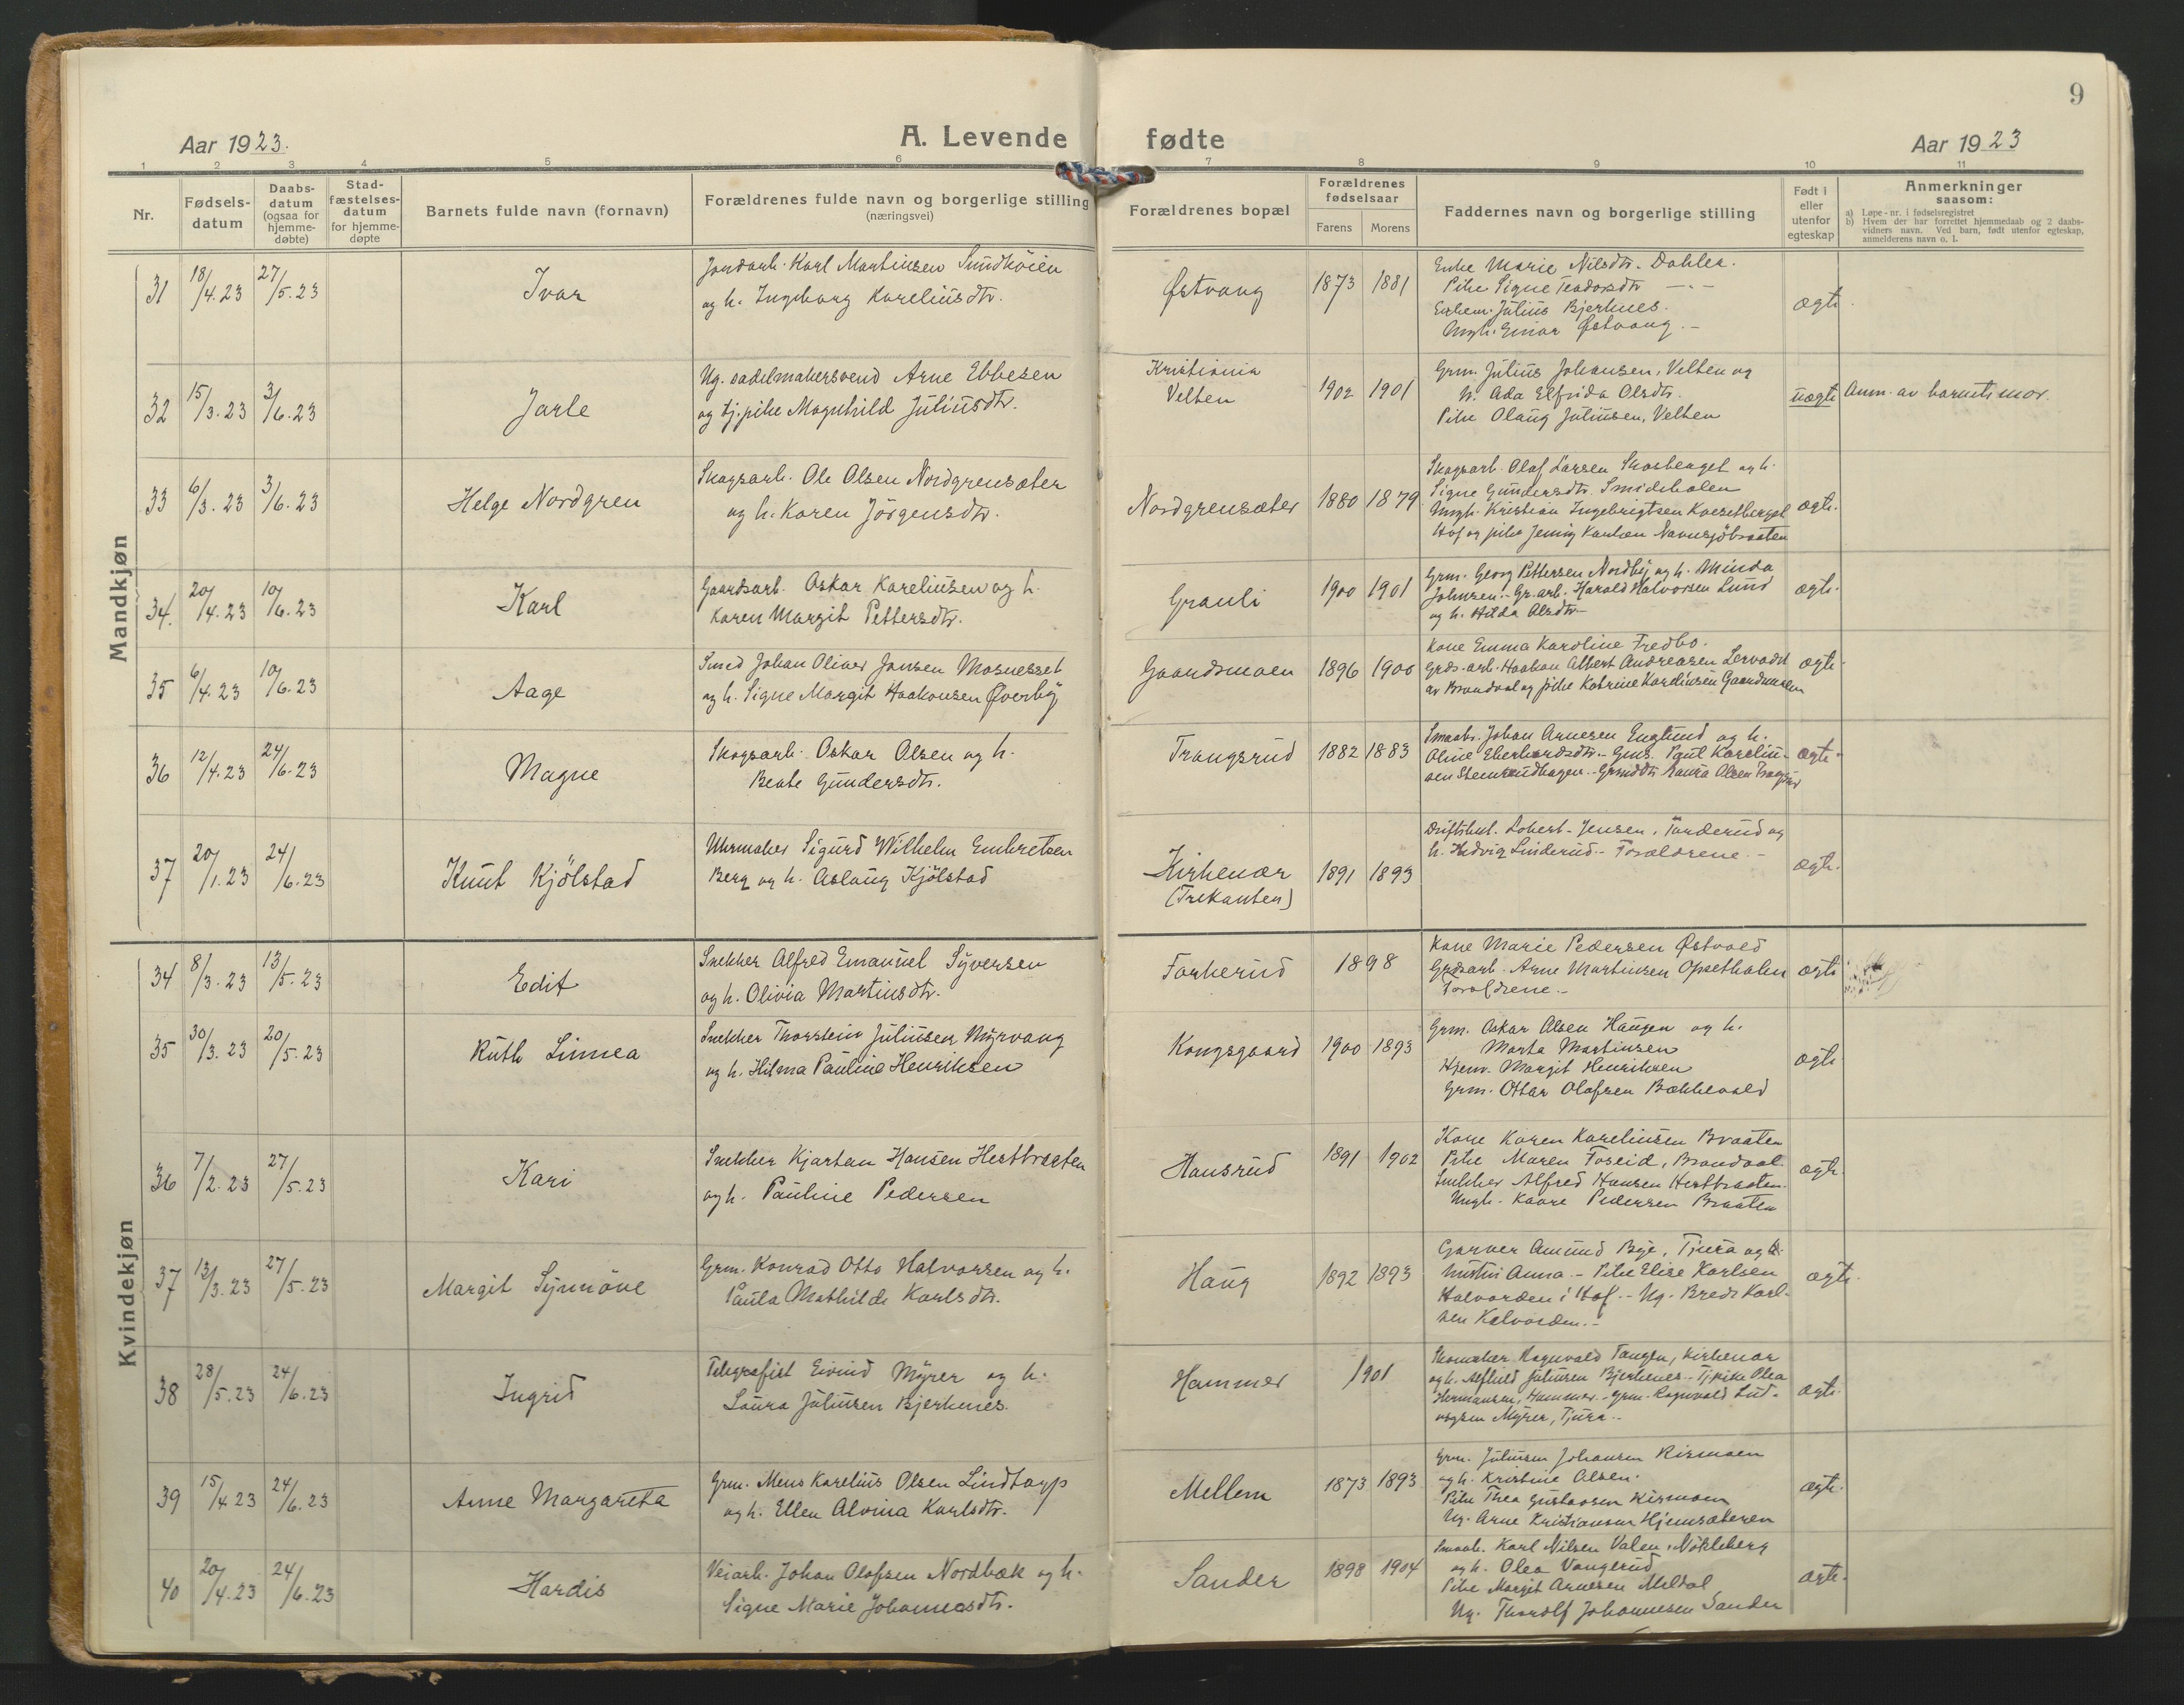 9
Aar 1923.
A. Levende fødte
Aar 1923
1 2 3 4 5 6 7 8 9 10 11
Nr.
Fødsels-
datum
Daabs-
datum
(ogsaa for
hjemme-
døbte)
Stad-
fæstelses-
datum
for hjemme-
døpte
Barnets fulde navn (fornavn)
Forældrenes fulde navn og borgerlige stilling
(næringsvei)
Forældrenes bopæl
Forældrenes
fødselsaar
Farens Morens
Faddernes navn og borgerlige stilling
Født i
eller
utenfor
egteskap
Anmerkninger
saasom:
a) Løpe-nr. i fødselsregistret
b) Hvem der har forrettet hjemmedaab og 2 daabs-
vidners navn. Ved barn, født utenfor egteskap,
anmelderens navn o. l.
Mandkjøn
31 18/4.23 27/5.23 Ivar
Jordarb. Karl Martinsen Sundköien
og h. Ingeborg Kareliusdtr.
Østvang 1873 1881
Enke Marie Nilsdtr. Dahlen.
Pike Signe Teodorsdtr —"—
Julius Bjerknes.
Ungk. Einar Østvang.—
ægte.
32 15/3.23 3/6.23 Jarle
Ug. sadelmakersvend Arne Ebbesen
og tj.pike Magnhild Juliusdtr.
Kristiania
Velten 1902 1901
Grm. Julius Johansen, Velten og
h. Ada Elfrida Olsdtr.
Pike Olaug Juliusen, Velten
uægte Anm. av barnets mor.
33 6/3.23 3/6.23 Helge Nordgren
Skogsarb. Ole Olsen Nordgrensæter
og h. Karen Jörgensdtr.
Nordgrensæter 1880 1879
Skogsarb. Olaf Larsen og h.
Signe Gundersdtr. Smidsholen
Ungk. Kristian Ingebrigtsen
Hof og pike Jenny Karlsen
ægte.
34. 20/4.23 10/6.23 Karl
Gaardsarb. Oskar Kareliusen og h.
Karen Margit Pettersdtr.
Grauli 1900 1901
Grm. Georg Pettersen Nordby og h. Minda
Johnsen.- Gr.arb. Harald Halvorsen Lund
og h. Hilda Olsdtr—
ægte.
35 6/4.23 10/6.23 Aage
Smed Johan Oliver Jansen Mosnesset
og h. Signe Margit Haakonsen Øverby
Gaardsmoen 1896 1900
Kone Emma Karoline Fredbo.
Grds.arb. Haakon Albert Andreasen
av Brandval og pike Katrine Kareliusen Gaardsmoen
ægte
36 12/4.23 24/6.23 Magne
Skogsarb. Oskar Olsen og h.
Beate Gundersdtr.
Trangsrud 1882 1883
Smaabr. Johan Arnesen Englund og h.
Oline Eberhardsdtr.- Grns. Paul Kareliu-
sen Stemsrudhagen.- Laura Olsen Trangsrud
ægte.
37 20/1.23 24/6.23 Knut Kjölstad
Uhrmaker Sigurd Wilhelm Embretsen
Berg og h. Aslaug Kjölstad
Kirkenær
(Trekanten) 1891 1893
Driftsbest. Jensen, Tørderud og
h. Hedvig Linderud.- Forældrene.—
ægte.
Kvindekjøn
34 8/3.23 13/5.23 Edit
Snekker Alfred Emanuel Syversen
og h. Olivia Martinsdtr.
Torkerud 1898
Kone Marie Pedersen Østvold
Grdsarb. Arne Martinsen Opsetholen
Forældrene.—
ægte
35 30/3.23 20/5.23 Ruth Linnea
Snekker Thorstein Juliusen Myrvang
og h. Hilma Pauline Henriksen
Kongsgaard 1900 1893
Grm. Oskar Olsen Haugen og h.
Marta Martinsen
Hjemv. Margit Henriksen
Grm. Ottar Olafsen Bækkevold
ægte
36 7/2.23 27/5.23 Kari
Snekker Kjartan Hansen Hestbraaten
og h. Pauline Pedersen
Hansrud 1891 1902
Kone Karen Kareliusen Braaten
Pike Maren Foseid, Brandval.
Snekker Alfred Hansen Hestbraaten.
Ungk. Kaare Pedersen Braaten
ægte.
37 13/3.23 27/5.23 Margit Synnöve
Grm. Konrad Otto Halvorsen og h.
Paula Mathilde Karlsdtr.
Haug 1892 1893
Garver Amund Bye, Tjura og
hustru Anna.- Pike Elise Karlsen
Halvorden i Hof.- Ug. Brede Karl-
sen Kalvorden.—
ægte.
38 28/5.23 24/6.23 Ingrid
Telegrafist Eivind Myrer og h.
Laura Juliusen Bjerknes.
Hammer 1901
Skomaker Ragnvald Tangen, Kirkenær
og h. Alfhild Juliusen Bjerknes.- Tj.pike Olea
Hermansen, Hammer.- Grm. Ragnvald Lud-
vigsen Myrer, Tjura.-
ægte.
39 15/4.23 24/6.23 Anne Margareta
Grm. Mens Karelius Olsen Lindtorp
og h. Ellen Alvina Karlsdtr.
Mellem 1873 1893
Grm. Juliusen Johansen Rismoen
og h. Kristine Olsen.
Pike Thea Gustavsen Rismoen
Ug. Arne Kristiansen Hjemsæteren
ægte.
40 20/4.23 24/6.23 Hardis
Veiarb. Johan Olafsen Nordbæk og h.
Signe Marie Johannesdtr.
Sander 1898 1904
Smaab. Karl Nilsen Valen, Nökleberg
og h. Olea Vangerud
Pike Margit Arnesen Meldal
Ug. Thorolf Johannesen Sander
ægte.